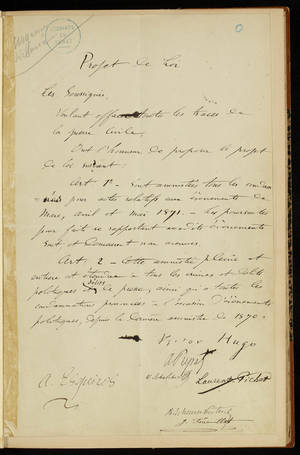 Urgence
déclarée
Projet de Loi
Les soussignés,
Voulant effacer toute les traces de
la guerre civile,
Ont l'honneur de proposer le projet
de loi suivant :
Art 1er - Sont amnistiés tous les condam-
nés pour actes relatifs aux évènements de
Mars, avril et mai 1871. - Les poursuites
pour faits se rapportant auxdits évènements
sont et demeurent non avenues.
Art. 2 - Cette amnistie pleine et
entière est étendue à tous les crimes et délits
politiques
délits
de presse, ainsi qu'à toutes les
condamnations prononcées à l'occasion d'évènements
politiques, depuis la dernière amnistie de 1870 -
Victor Hugo
A. Peyrat
A. Esquiros
Laurent Pichat